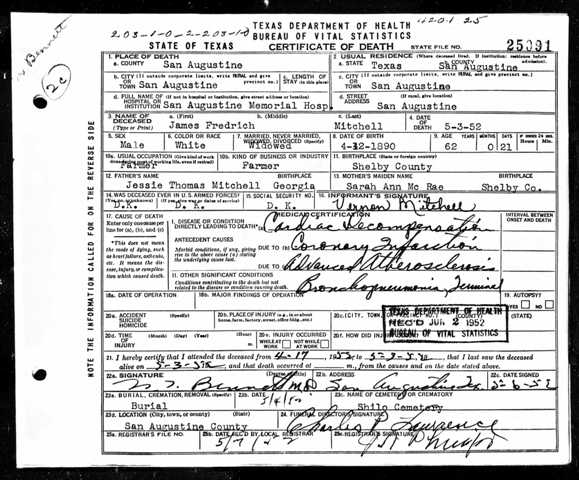 TEXAS DEPARTMENT OF HEALTH
BUREAU OF VITAL STATISTICS
STATE OF TEXAS CERTIFICATE OF DEATH STATE FILE NO. 25391
1. PLACE OF DEATH
a. COUNTY San Augustine
2. USUAL RESIDENCE (Where deceased lived. If institution: residence before admission)
a. STATE Texas b. COUNTY San Augustine
b. CITY (If outside corporate limits, write RURAL and give precinct no.) OR TOWN San Augustine
c. LENGTH OF STAY
c. CITY (If outside corporate limits, write RURAL and give precinct no.) OR TOWN San Augustine
d. FULL NAME OF (If not in hospital or institution, give street address or location) HOSPITAL OR INSTITUTION San Augustine Memorial Hosp.
d. STREET ADDRESS (If rural, give location) San Augustine
3. NAME OF DECEASED (Type or Print)
a. (First) James Fredrich b. (Middle) c. (Last) Mitchell
4. DATE OF DEATH 5-3-52
5. SEX Male
6. COLOR OR RACE White
7. MARRIED, NEVER MARRIED, WIDOWED, DIVORCED (Specify) Widowed
8. DATE OF BIRTH 4-12-1890
9. AGE 62 0 21
10a. USUAL OCCUPATION Farmer
10b. KIND OF BUSINESS OR INDUSTRY Farmer
11. BIRTHPLACE (State or foreign country) Shelby County
12. FATHER'S NAME BIRTHPLACE
Jessie Thomas Mitchell Georgia
13. MOTHER'S MAIDEN NAME BIRTHPLACE
Sarah Ann Mc Rae Shelby Co.
14. WAS DECEASED EVER IN U.S. ARMED FORCES? D.K. D. K.
15. SOCIAL SECURITY NO. D. K.
16. INFORMANT'S SIGNATURE Vernon Mitchell
MEDICAL CERTIFICATION
INTERVAL BETWEEN ONSET AND DEATH
17. CAUSE OF DEATH
Enter only one cause per line for (a), (b), and (c)
I. DISEASE OR CONDITION DIRECTLY LEADING TO DEATH (a) Cardiac Decompensation
*This does not mean the mode of dying, such as heart failure, asthenia, etc. It means the disease, injury, or complication which caused death.
ANTECEDENT CAUSES
Morbid conditions, if any, giving rise to the above cause (a) stating the underlying cause last.
DUE TO (b) Coronary Infarction
DUE TO (c) Advanced Atherosclerosis
II. OTHER SIGNIFICANT CONDITIONS
Conditions contributing to the death but not related to the disease or condition causing death.
Bronchopneumonia, Terminal
18a. DATE OF OPERATION
18b. MAJOR FINDINGS OF OPERATION
19. AUTOPSY YES NO
20a. ACCIDENT SUICIDE HOMICIDE
20b. PLACE OF INJURY (e.g., in or about home, farm, factory, street, office bldg., etc.)
TEXAS DEPARTMENT OF HEALTH
REC'D JUN 2 1952
BUREAU OF VITAL STATISTICS
20d. TIME OF INJURY (Month) (Day) (Year) (Hour)
20e. INJURY OCCURRED WHILE AT WORK NOT WHILE AT WORK
20f. HOW DID INJURY
21. I hereby certify that I attended the deceased from 4-17 to that I last saw the deceased
alive on and that death occurred at m., from the causes and on the date stated above.
22a. SIGNATURE
22c. DATE SIGNED
23a. BURIAL, CREMATION, REMOVAL (Specify) Burial
23b. DATE
23c. NAME OF CEMETERY OR CREMATORY Shilo Cemetery
23d. LOCATION (City, town, or county) (State) San Augustine County
24. FUNERAL DIRECTOR'S SIGNATURE Charles P. Lawrence
25a. REGISTRAR'S FILE NO.
25b. DATE REC'D BY LOCAL REGISTRAR
25c. REGISTRAR'S SIGNATURE
NOTE THE INFORMATION CALLED FOR ON THE REVERSE SIDE